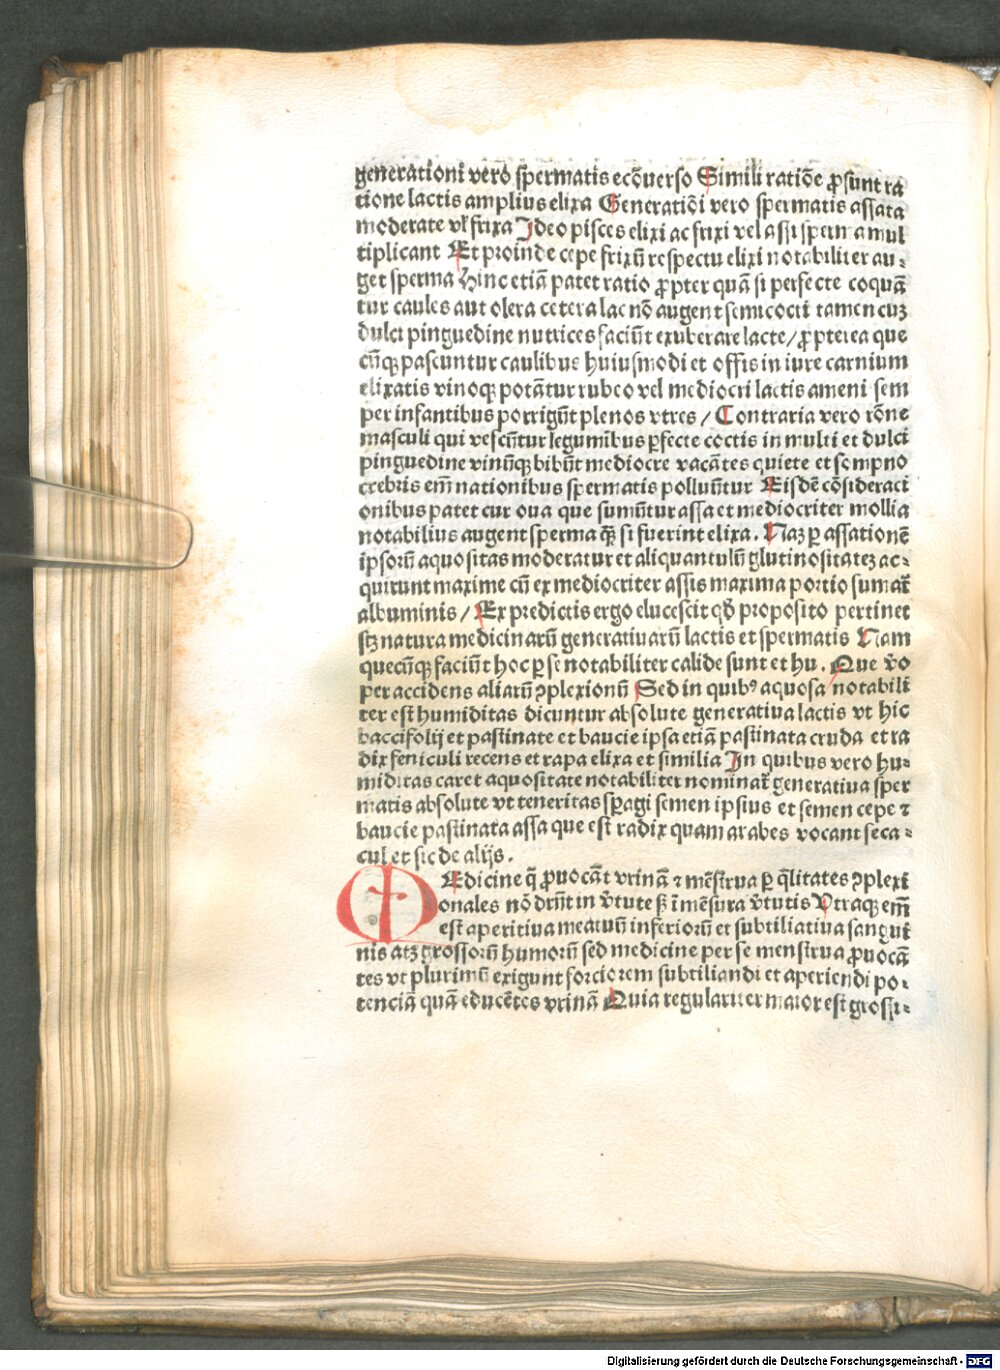 generationi vero spermatis ecōuerso Simili ratiōe ꝓsunt ra
tione lactis amplius elixa Generatiōi vero spermatis assata
moderate vĺ frixa Ideo pisces elixi ac frixi vel assi sperma mul
tiplicant Et proinde cepe frixū respectu elixi notabiliter au⸗
get sperma Hinc etiā patet ratio ꝓpter quā si perfecte coquā
tur caules aut olera cetera lac nō augent semicocti tamen cuꝫ
dulci pinguedine nutrices faciūt exuberare lacte/ ꝓpterea que
cūqꝫ pascuntur caulibus huiusmodi et offis in iure carnium
elixatis vinoqꝫ potātur rubeo vel mediocri lactis ameni sem
per infantibus porrigūt plenos vtres / Contraria vero rōne
masculi qui vescūtur legumībus ꝑfecte coctis in multi et dulci
pinguedine vinūqꝫ bibūt mediocre vacātes quiete et sompno
crebris em̄ nationibus spermatis polluūtur Eisdē cōsideraci
onibus patet cur oua que sumūtur assa et mediocriter mollia
notabilius augent sperma q̄ꝫ si fuerint elixa. Naꝫ ꝑ assationē
ipsorū aquositas moderatur et aliquantulū glutinositateꝫ ac⸗
quirunt maxime cū ex mediocriter assis maxima portio sumat̄
albuminis / Ex predictis ergo elucescit qd̄ proposito pertinet
scꝫ natura medicinarū generatiuarū lactis et spermatis Nam
quecūqꝫ faciūt hoc ꝑ se notabiliter calide sunt et hu. Que v̄o
per accidens aliarū ꝯplexionū Sed in quibꝰ aquosa notabili
ter est humiditas dicuntur absolute generatiua lactis vt hic
baccifolij et pastinate et baucie ipsa etiā pastinata cruda et ra
dix feniculi recens et rapa elixa et similia In quibus vero hu⸗
miditas caret aquositate notabiliter nominat̄ generatiua sper
matis absolute vt teneritas sꝑagi semen ipsius et semen cepe ⁊
baucie pastinata assa que est radix quam arabes vocant seca⸗
cul et sic de alijs.
Medicine q̄ ꝓuocāt vrinā ⁊ mēstrua ꝑ q̄litates ꝯplexi
onales nō dr̄nt in v̄tute sꝫ ī mēsura v̄tutis Vtraqꝫ em̄
est aperitiua meatuū inferiorū et subtiliatiua sangui
nis atqꝫ grossorū humorū sed medicine per se menstrua ꝓuocā
tes vt plurimū exigunt forciorem subtiliandi et aperiendi po⸗
tenciā quā educētes vrinā Quia regulariter maior est grossi⸗
Digitalisierung gefördert durch die Deutsche Forschungsgemeinschaft - DFG